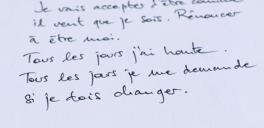 Je vais accepter d'être comme
il veut que je sois. Renoncer
à être moi.
Tous les jours j'ai honte.
Tous les jours je me demande
si je dois changer.